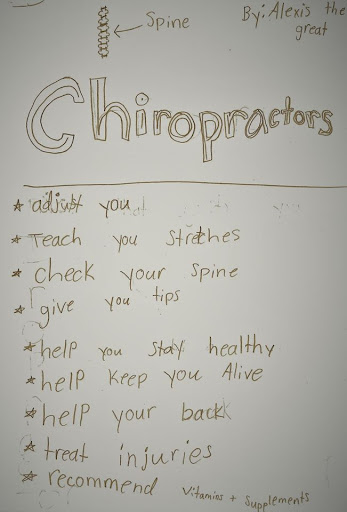 Spine
By: Alexis the
great
Chiropractors
adjust you
Teach you stretches
check your spine
give you tips
help you stay healthy
help keep you Alive
help your back
treat injuries
recommend Vitamins + Supplements